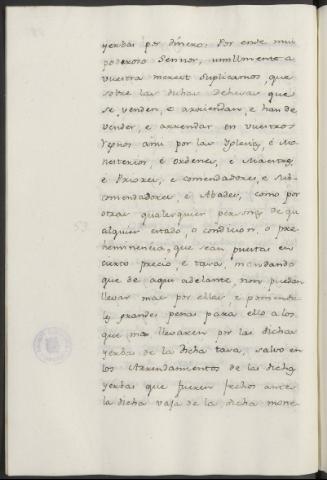 yerbas por dinero. Por ende mui
poderoso Sennor, umillmente a
vuestra merzet suplicamos, que
sobre las dichas dehesas que
se venden, e arriendan, e han de
vender, e arrendar en vuestros
regnos asi por las Yglesias, e Mo-
nesterios, e Ordenes, e Maestres,
e Priores, e comendadores, e Sub-
comendadores, e Abades, como por
otras qualesquier personas de qu
alquier estado, o condicion, o pre-
heminencia, que sean puestas en
cierto precio, e tasa, mandando
que de aqui adelante, non puedan
llevar mas por ellas, e poniendo
les grandes penas para ello a los
que mas llevaren por las dichas
yerbas de la dicha tasa, salvo en
los Arrendamientos de las dichas
yerbas que fueron fechos ante
la dicha vaja de la dicha mone-